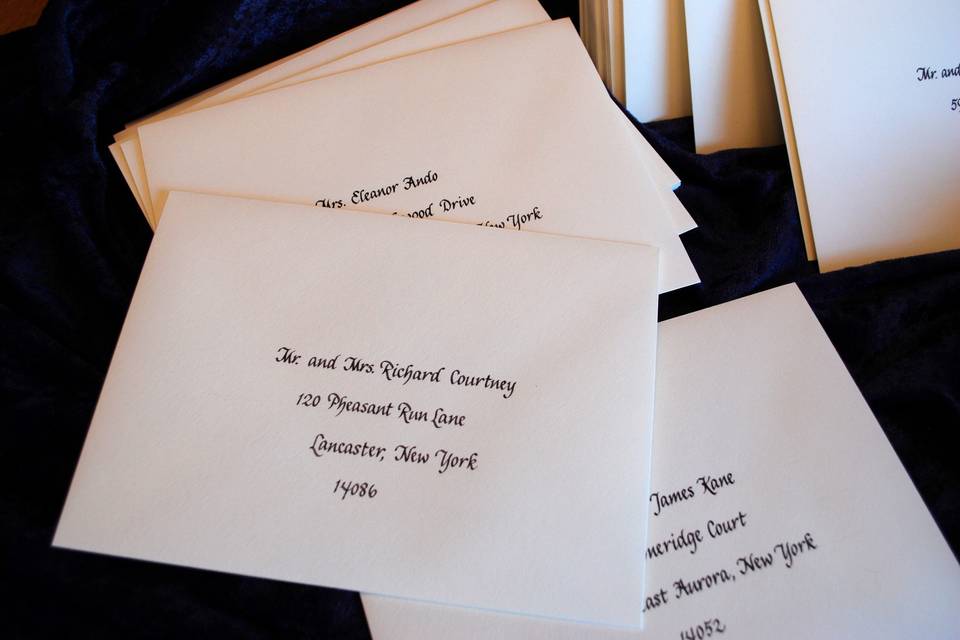 Mr. and
59
Mrs. Eleanor Ando
Drive
New York
Mr. and Mrs. Richard Courtney
120 Pheasant Run Lane
Lancaster, New York
14086
James Kane
meridge Court
East Aurora, New York
14052